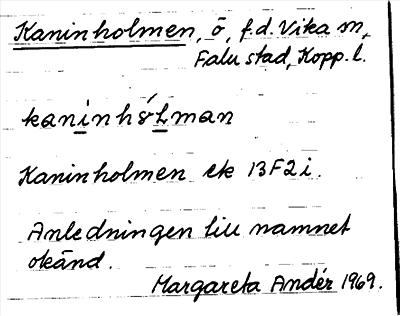 Kaninholmen, ö, f.d. Vika sn,
Falu stad, Kopp. l.
kaninhólman
Kaninholmen ek 13F2i.
Anledningen till namnet
okänd.
Margareta Andér 1969.